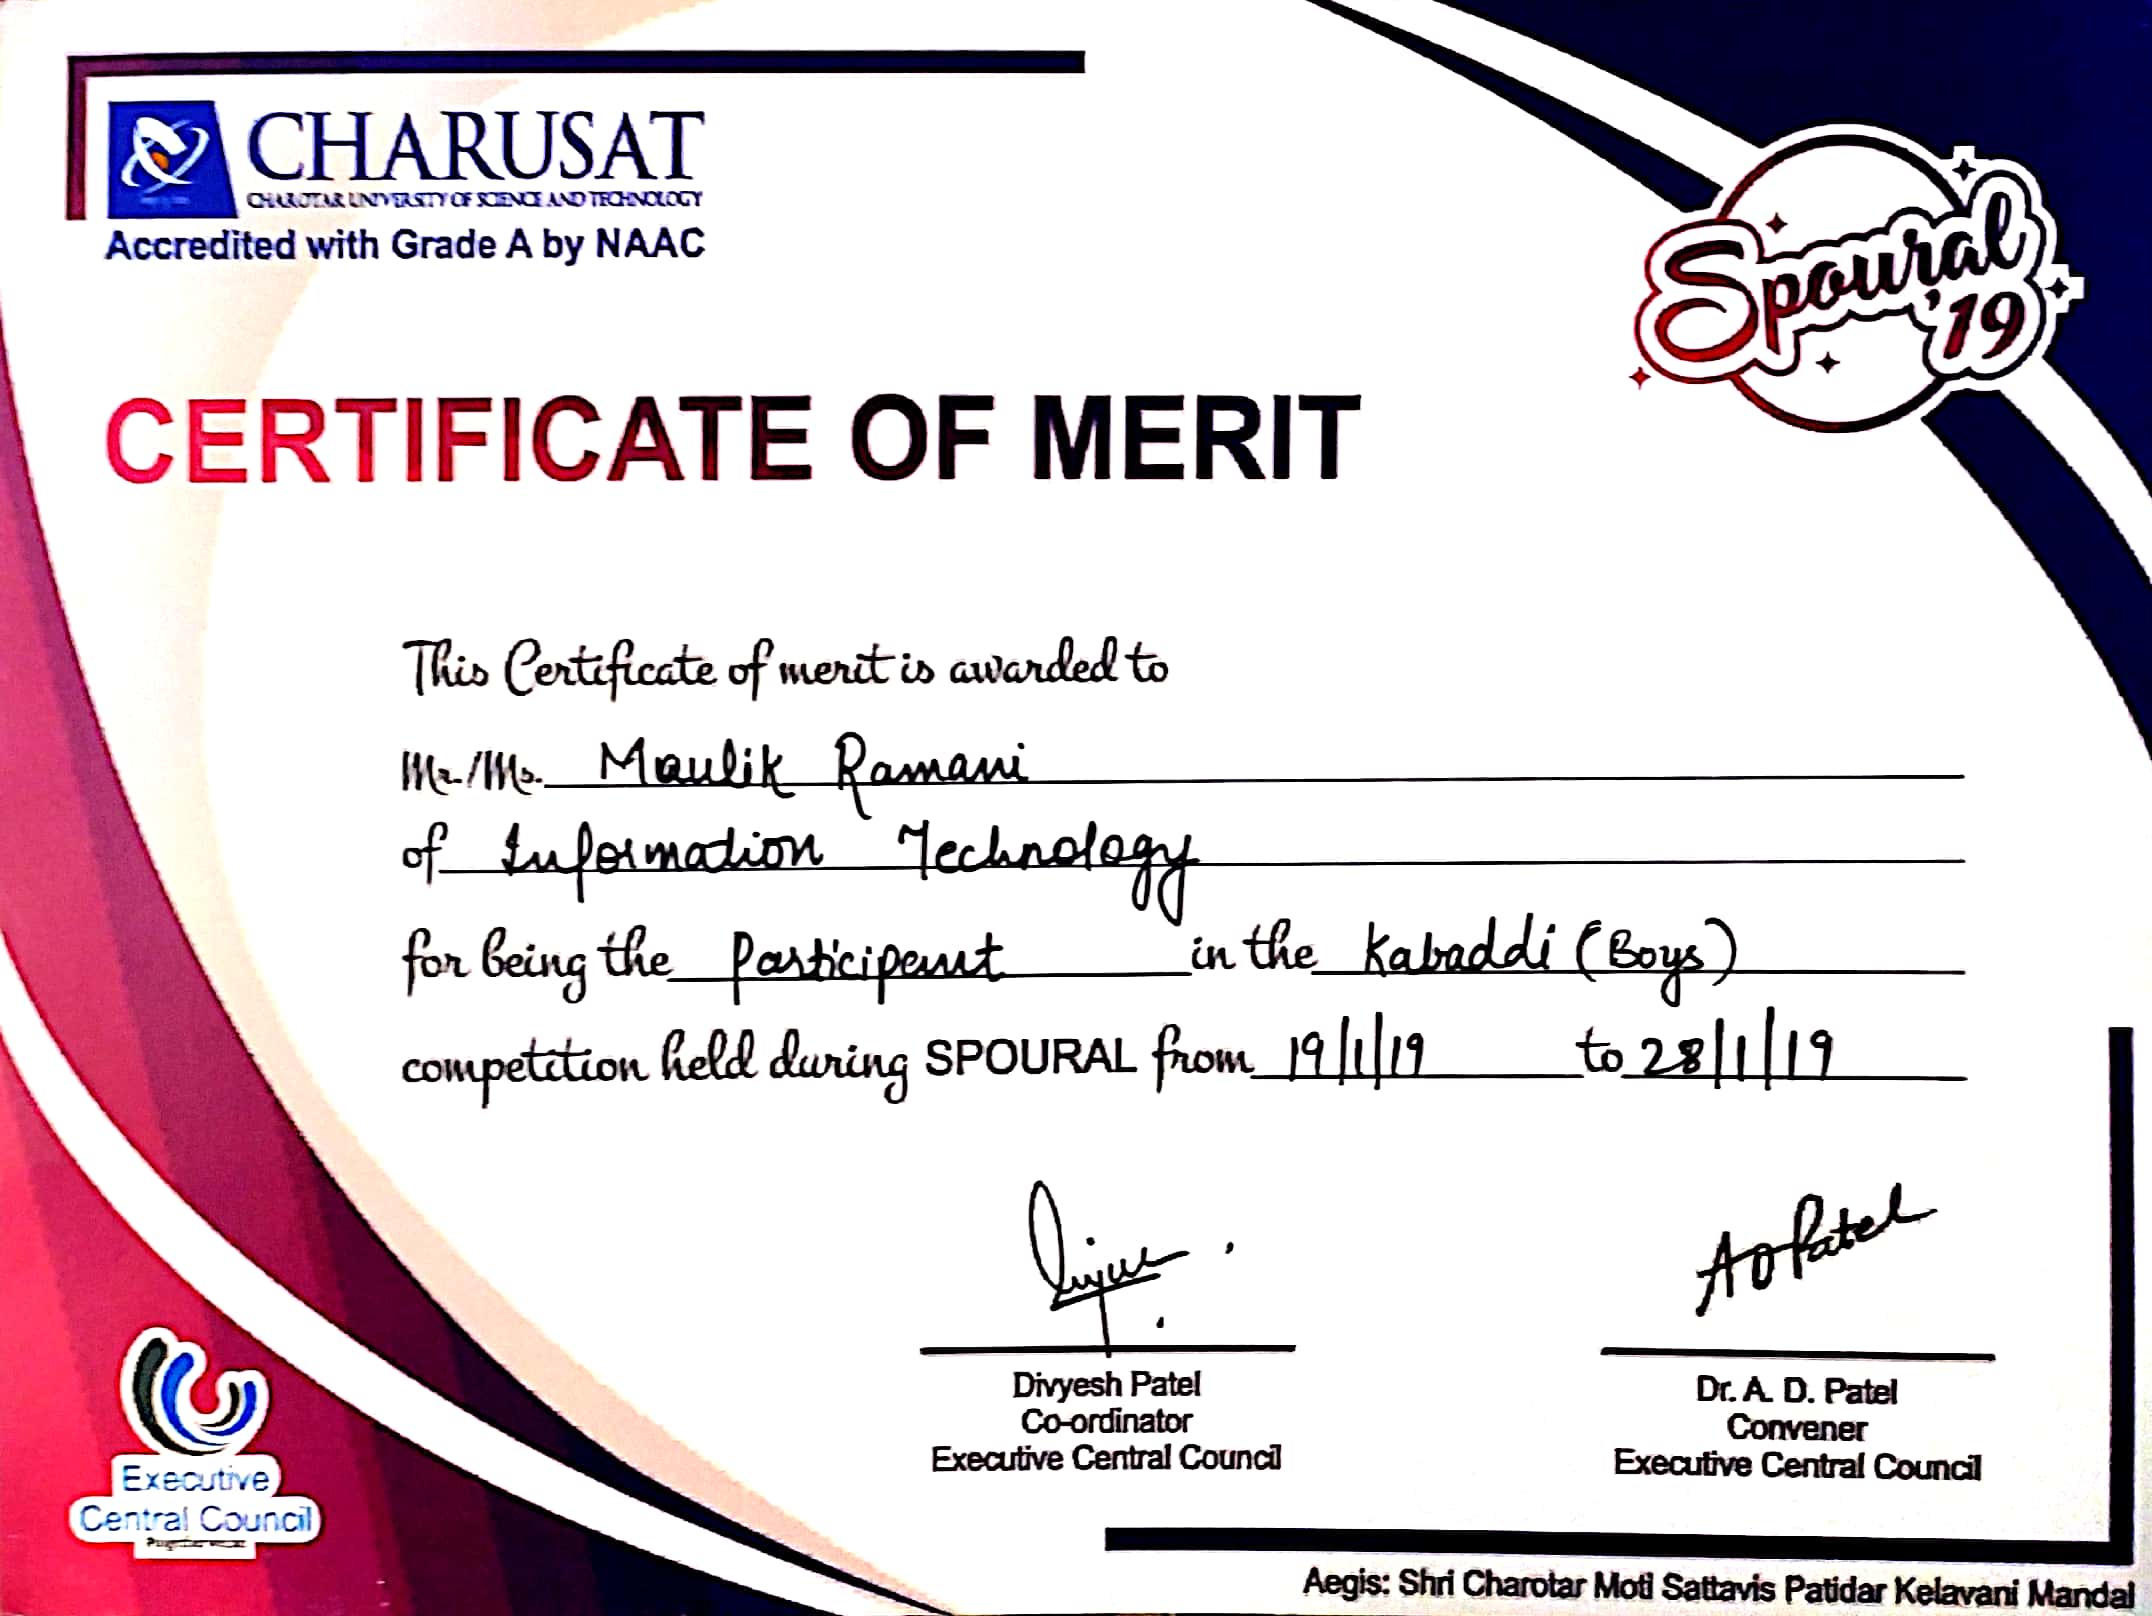 CHARUSAT
CHAROTAR UNIVERSITY OF SCIENCE AND TECHNOLOGY
Accredited with Grade A by NAAC
Spoural
'19
CERTIFICATE OF MERIT
This Certificate of merit is awarded to
Mr./Ms. Maulik Ramani
of Information Technology
for being the Participant in the Kabaddi (Boys)
competition held during SPOURAL from 19/1/19 to 28/1/19
A D Patel
Divyesh Patel
Co-ordinator
Executive Central Council
Dr. A. D. Patel
Convener
Executive Central Council
Executive
Central Council
Aegis: Shri Charotar Moti Sattavis Patidar Kelavani Mandal